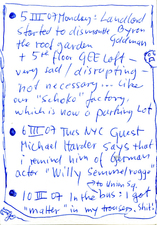 • 5 III 07 Monday: Landlord
started to dismantle Byron
the roof garden Goldman
+ 5th floor GEE Loft -
very sad / disrupting -
not necessary... like
our "Schoko" factory.
which is now a parking lot
• 6 III 07 Tues NYC Guest
Michael Harder says that
i remind him of German
actor "Willy Semmelrogge"
to Union Sq.
• 10 III 07 In the bus: I got
"matter" in my trousers. Shit!